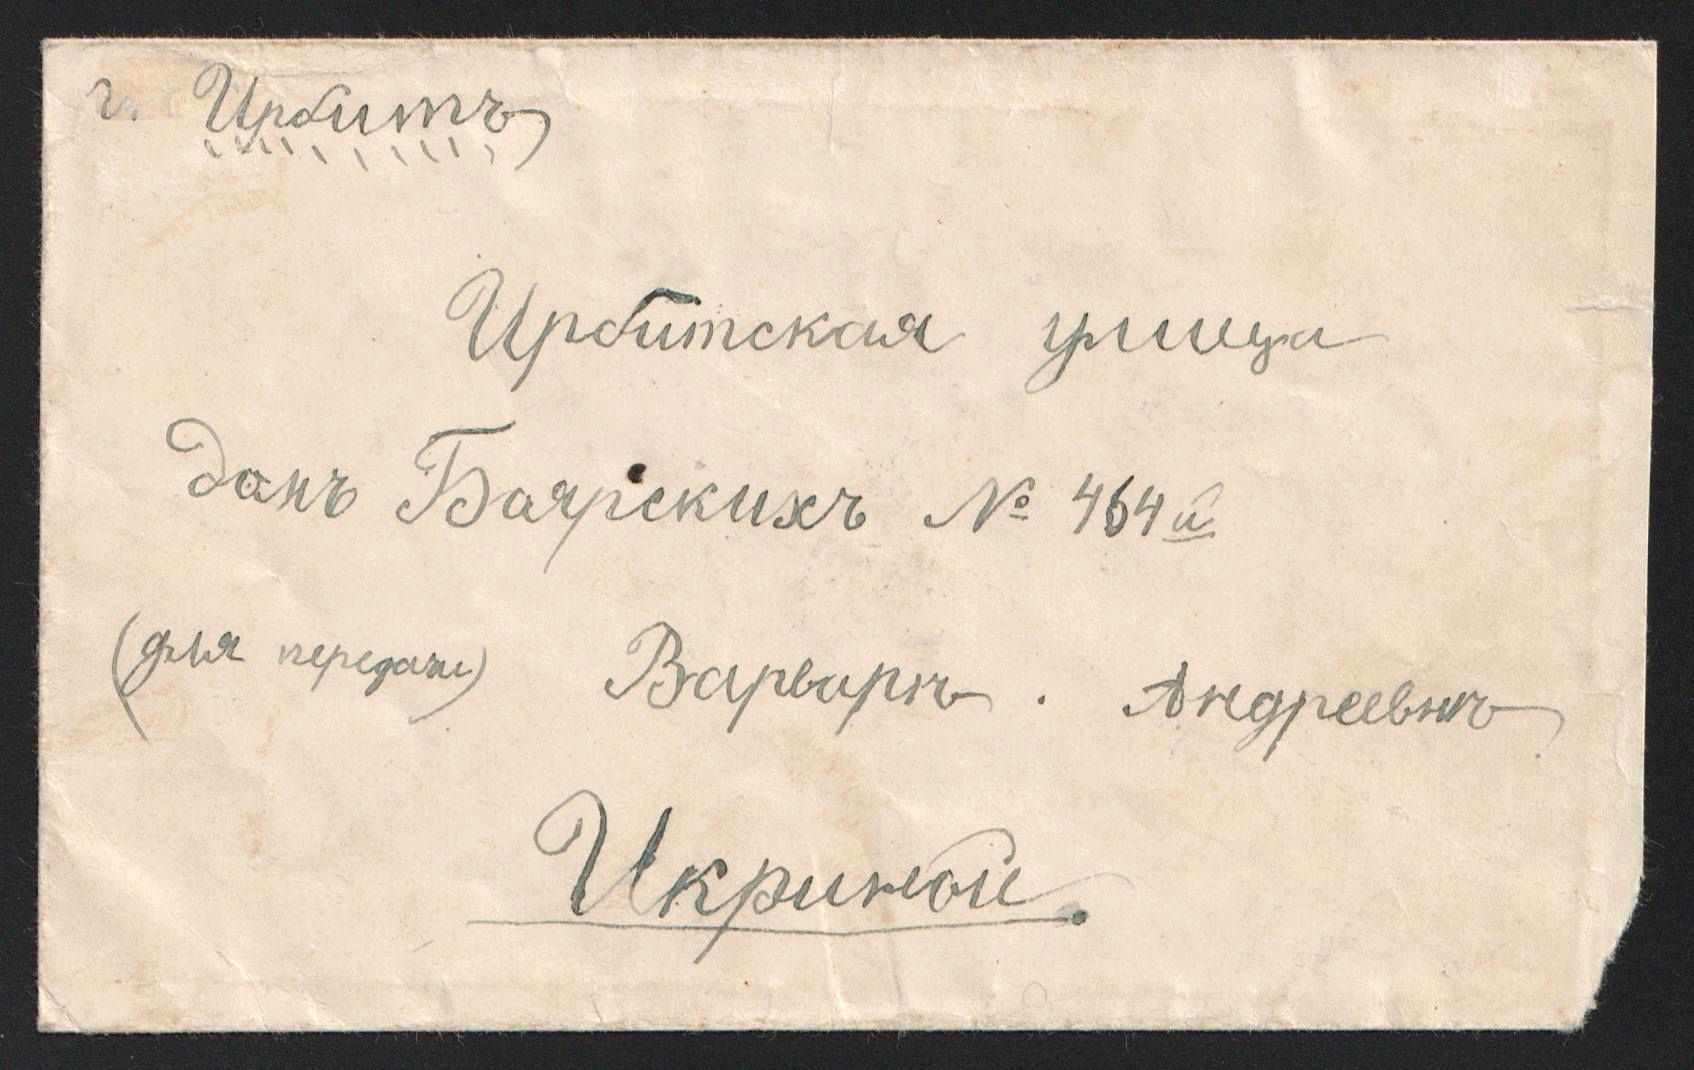 г. Ирбитъ
Ирбитская улица
домъ Боярскихъ № 464й
(для передачи) Варварѣ. Андреевнѣ
Икриной.